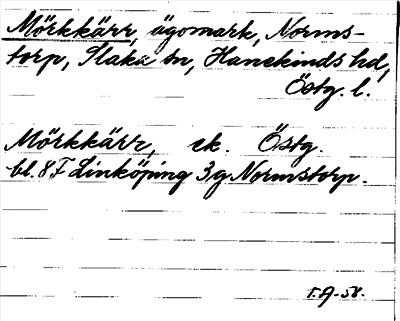 Mörkkärr, ägomark, Norms-
torp, Slaka sn, Hanekinds hd,
Östg. l.
Mörkkärr, ek. Östg.
bl. 8 F Linköping 3g Normstorp.
T.A. -58.